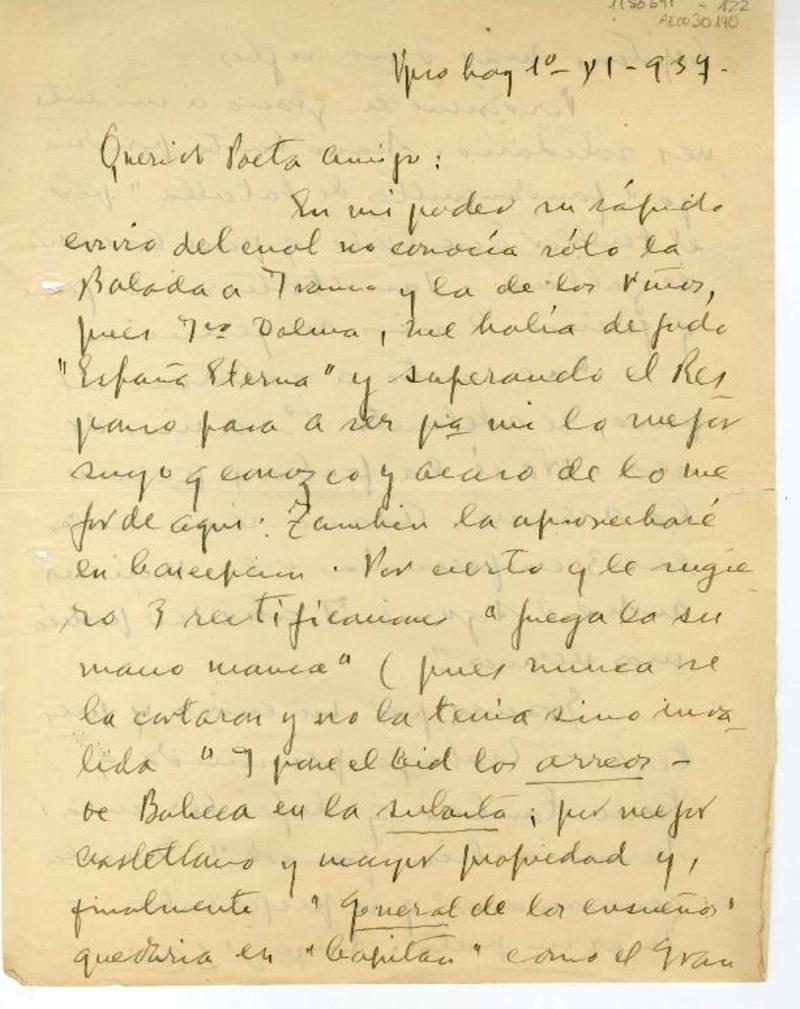 AE0030140
Vpso hoy 1º - XI - 937.
Querido Poeta amigo:
En mi poder su rápido
envio del cual no conocía sólo la
Balada a Franco y la de los Niños,
pues Fco Dalma, me había dejado
"España Eterna" y superando el Res
ponso pasa a ser pa mi lo mejor
suyo q conozco y acaso de lo me
jor de aqui. Tambien la aprovecharé
en Concepcion. Por cierto q le sugie
ro 3 rectificaciones "juega la su
mano manca" (pues nunca se
la cortaron y no la tenia sino inva-
lida "Y pone el Cid los arreos -
de Babieca en la subasta; por mejor
castellano y mayor propiedad y,
finalmente "General de los ensueños"
quedaria en "Capitán" como el Gran